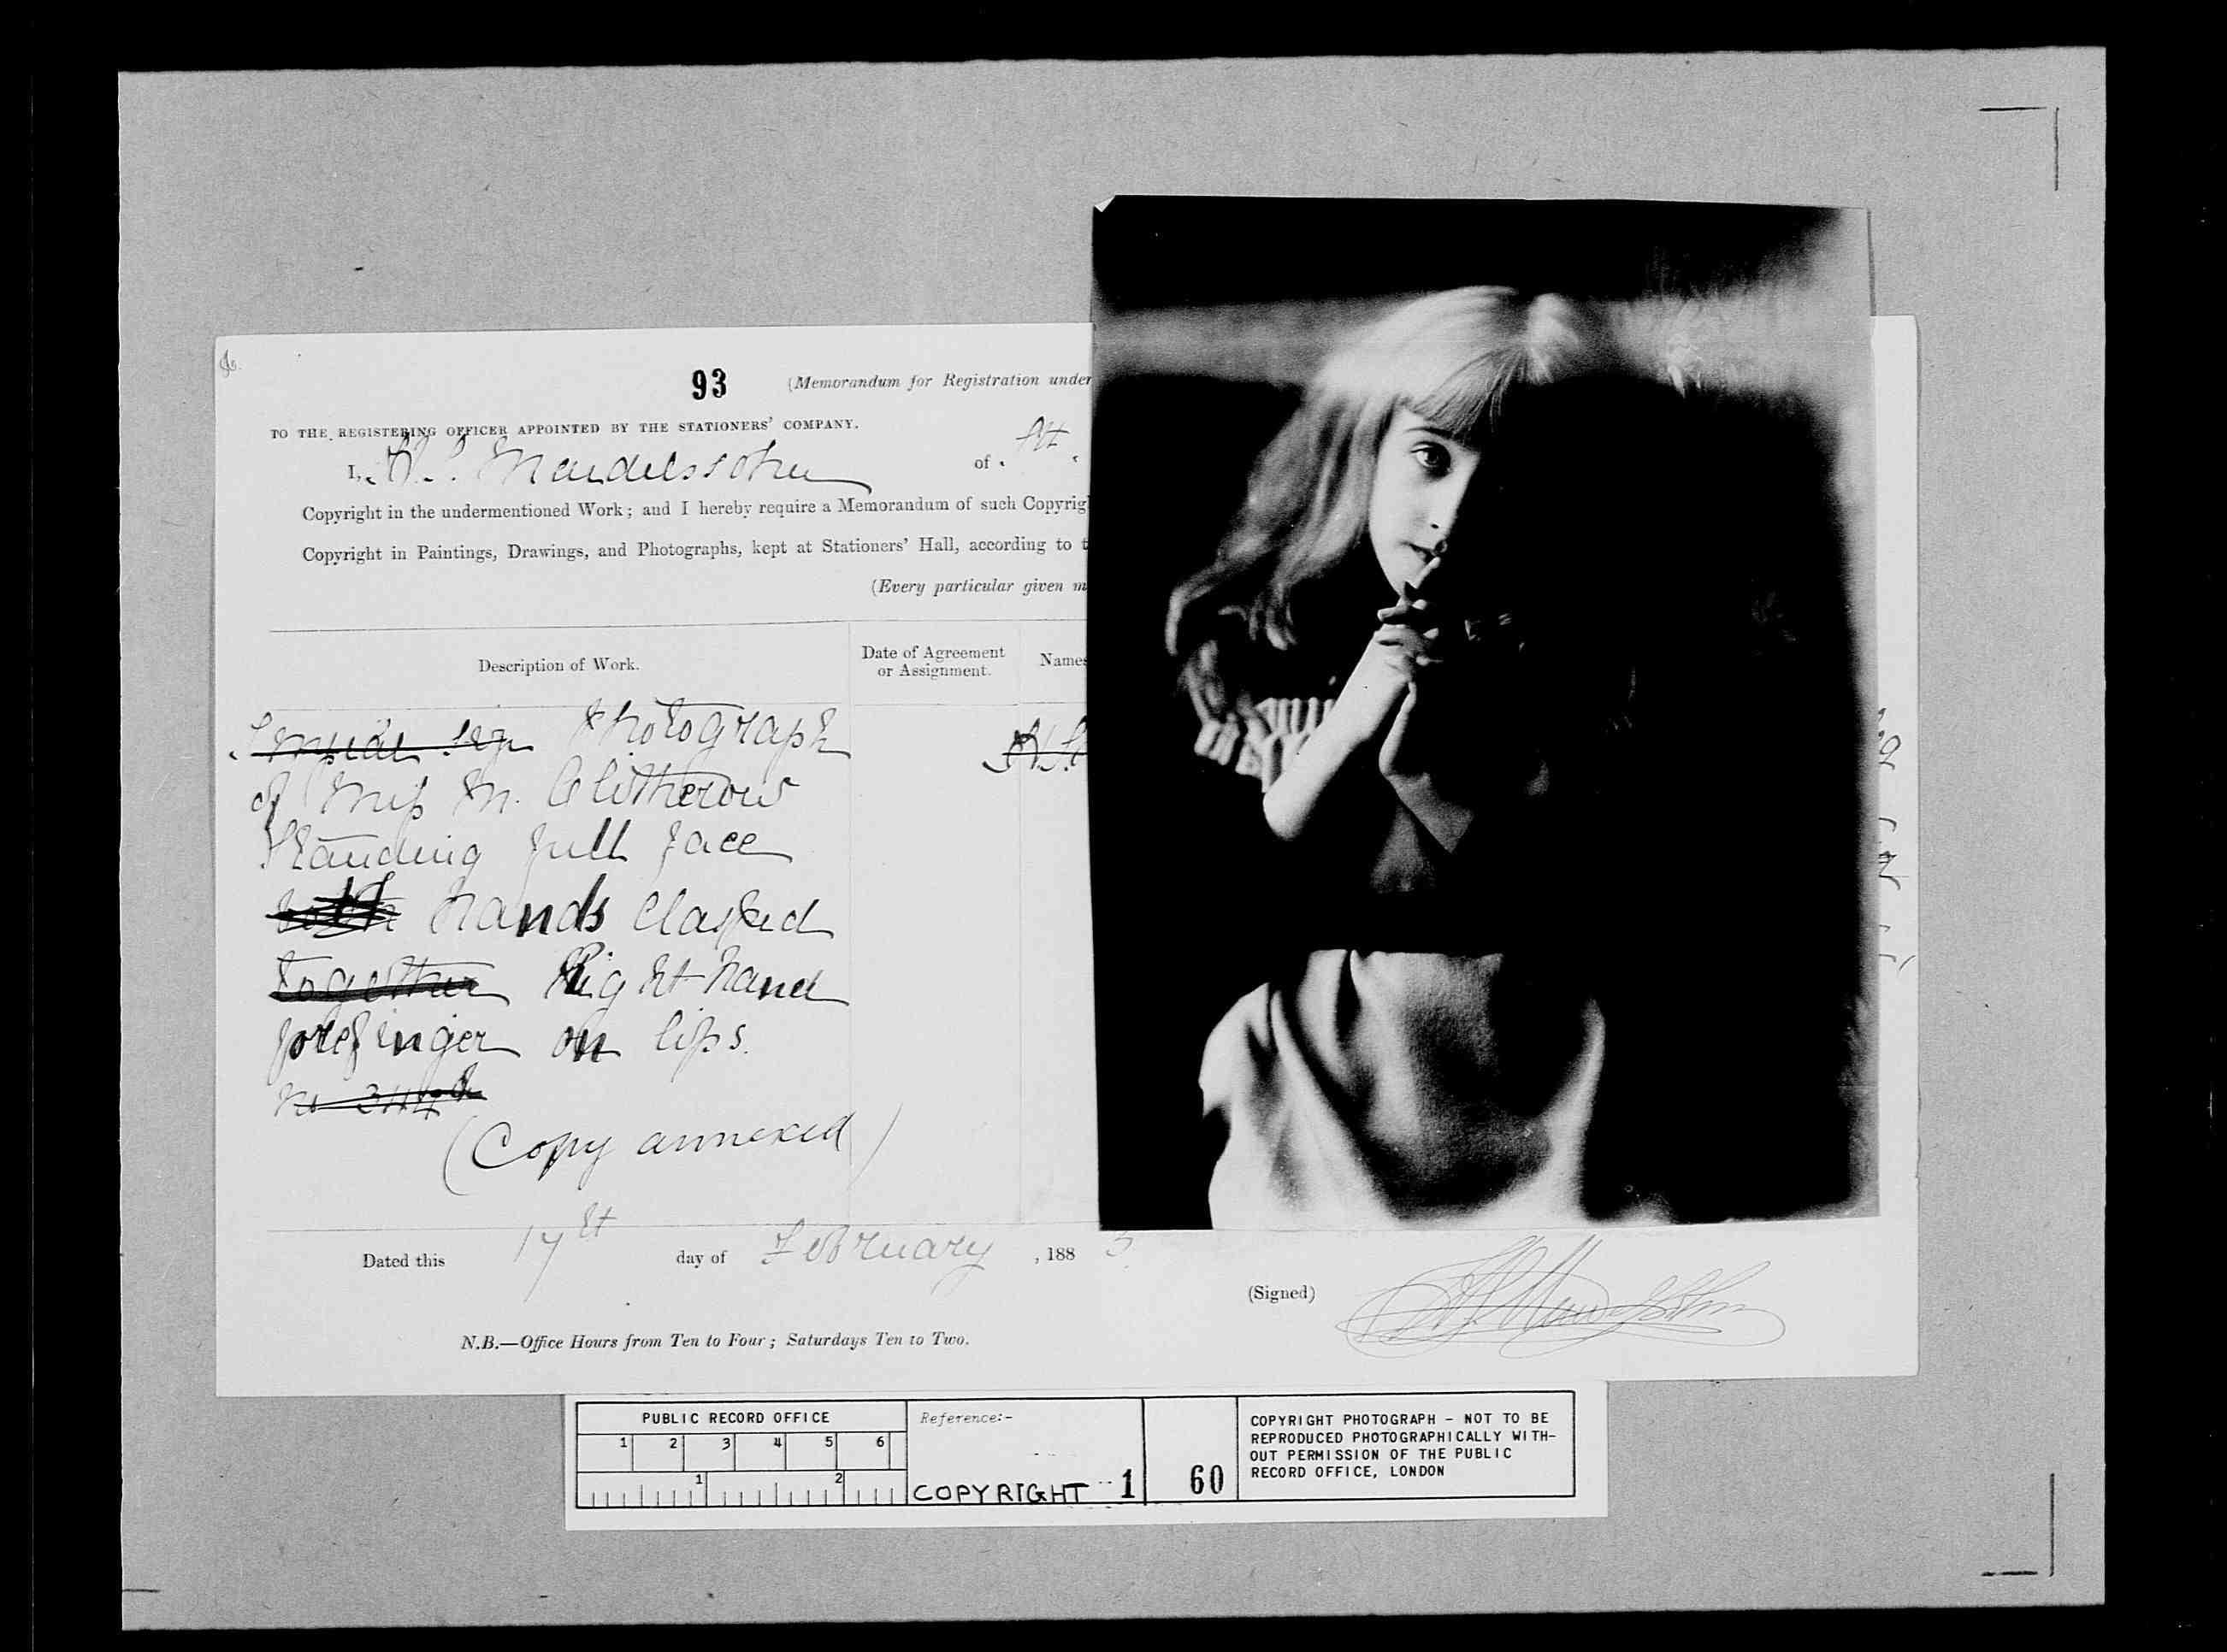 93 (Memorandum for Registration under
TO THE REGISTERING OFFICER APPOINTED BY THE STATIONERS' COMPANY.
I, H. S. Mendelssohn of
Copyright in the undermentioned Work; and I hereby require a Memorandum of such Copyrig
Copyright in Paintings, Drawings, and Photographs, kept at Stationers' Hall, according to t
(Every particular given m
Description of Work.
Date of Agreement
or Assignment.
Names
Photograph
of Miss M. Clitherow
Standing full face
both hands clasped
together Right hand
forefinger on lips.
No 344a
(Copy annexed)
Dated this 17th day of February, 1885
(Signed) H S Mendelssohn
N.B.—Office Hours from Ten to Four; Saturdays Ten to Two.
PUBLIC RECORD OFFICE
1 2 3 4 5 6
1 2
Reference:-
COPYRIGHT 1 60
COPYRIGHT PHOTOGRAPH - NOT TO BE
REPRODUCED PHOTOGRAPHICALLY WITH-
OUT PERMISSION OF THE PUBLIC
RECORD OFFICE, LONDON